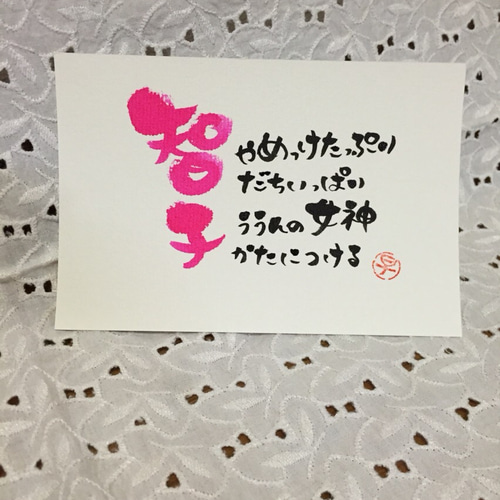 智子
やめっけたっぷり
だちいっぱい
ううんの女神
かたにつける